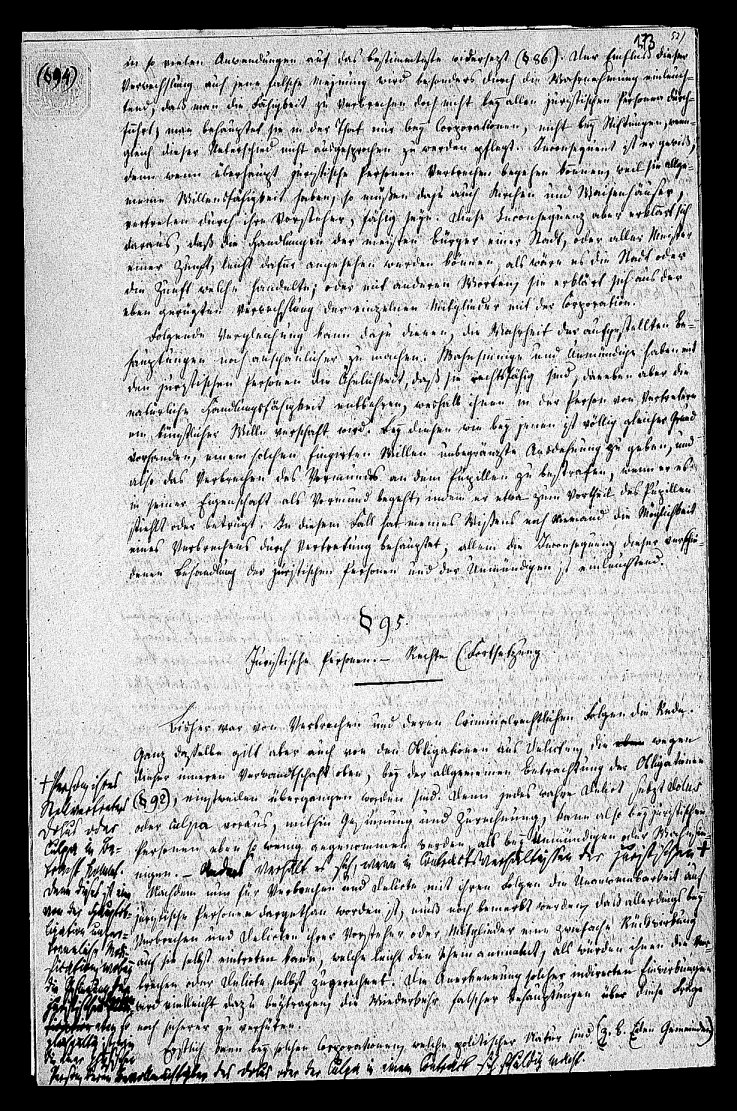 133
521
(§94)
in so vielen Anwendungen auf das bestimmteste widersezt (§86). Der Einfluß dieser
Verwechslung auf jene falsche Meynung wird besonders durch die Wahrnehmung einleuch-
tend, daß man die Fähigkeit zu Verbrechen doch nicht bey allen juristischen Personen durch-
führt; man behauptet sie in der That nur bey Corporationen, nicht bey Stiftungen, wenn-
gleich dieser Unterschied nicht ausgesprochen zu werden pflegt. Inconsequent ist er gewiß,
denn wenn überhaupt juristische Personen Verbrechen begehen können, weil sie allge-
meine Willensfähigkeit haben, so müßen dazu auch Kirchen und Waisenhäuser,
vertreten durch ihre Vorsteher, fähig seyn. Diese Inconsequenz aber erklärt sich
daraus, daß die Handlungen der meisten Bürger einer Stadt, oder aller Meister
einer Zunft, leicht dafür angesehen werden können als wäre es die Stadt oder
die Zunft welche handelte; oder mit anderen Worten, sie erklärt sich aus der
eben gerügten Verwechslung der einzelnen Mitglieder mit der Corporation.
Folgende Vergleichung kann dazu dienen, die Wahrheit der aufgestellten Be-
hauptungen noch anschaulicher zu machen. Wahnsinnige und Unmündige haben mit
den juristischen Personen die Ähnlichkeit, daß sie rechtsfähig sind, daneben aber die
natürliche Handlungsfähigkeit entbehren, weshalb ihnen in der Person von Vertretern
ein künstlicher Wille verschafft wird. Bey diesen wie bey jenen ist völlig gleicher Grund
vorhanden, einem solchen fingirten Willen unbegränzte Ausdehnung zu geben, und
also das Verbrechen des Vormunds an dem Pupillen zu bestrafen, wenn er es
in seiner Eigenschaft als Vormund begeht, indem er etwa zum Vortheil des Pupillen
stiehlt oder betrügt. In diesem Fall hat meines Wissens noch Niemand die Möglichkeit
eines Verbrechens durch Vertretung behauptet, allein die Inconsequenz dieser verschie-
denen Behandlung der juristischen Personen und der Unmündigen ist einleuchtend.
§ 95.
Juristische Personen. – Rechte (Fortsetzung)
Bisher war von Verbrechen und deren criminalrechtlichen Folgen die Rede.
Ganz dasselbe gilt aber auch von den Obligationen aus Delicten, die wegen
dieser inneren Verwandtschaft oben, bey der allgemeinen Betrachtung der Obligationen
(§92), einstweilen übergangen worden sind. Denn jedes wahre Delict setzt Dolus
oder Culpa voraus, mithin Gesinnung und Zurechnung, kann also bey juristischen
Personen eben so wenig angenommen werden als bey Unmündigen oder Wahnsin-
nigen. – Anders verhält es sich, wenn in Contractsverhältnissen der juristischen +
Nachdem nun für Verbrechen und Delicte mit ihren Folgen die Unanwendbarkeit auf
juristische Personen dargethan worden ist, muß noch bemerkt werden, daß allerdings bey
Verbrechen und Delicten ihrer Vorsteher oder Mitglieder eine zwiefache Rückwirkung
auf sie selbst eintreten kann, welche leicht den Schein annimmt, als würden ihnen die Ver-
brechen oder Delicte selbst zugerechnet. Die Anerkennung solcher indirecten Einwirkungen
wird vielleicht dazu beytragen, die Wiederkehr falscher Behauptungen über diese Frage
noch sicherer zu verhüten.
Erstlich kann bey solchen Corporationen, welche politischer Natur sind (z. B. Gemeinden)
+ Person ihres
Stellvertreters
Dolus oder
Culpa in Be-
tracht kommt.
Denn dieses ist eine
von der Hauptob-
ligation unzer-
trennliche Mo-
dification, wobey
die
des Dolus oder der Culpa in einem Contract sich schuldig macht.